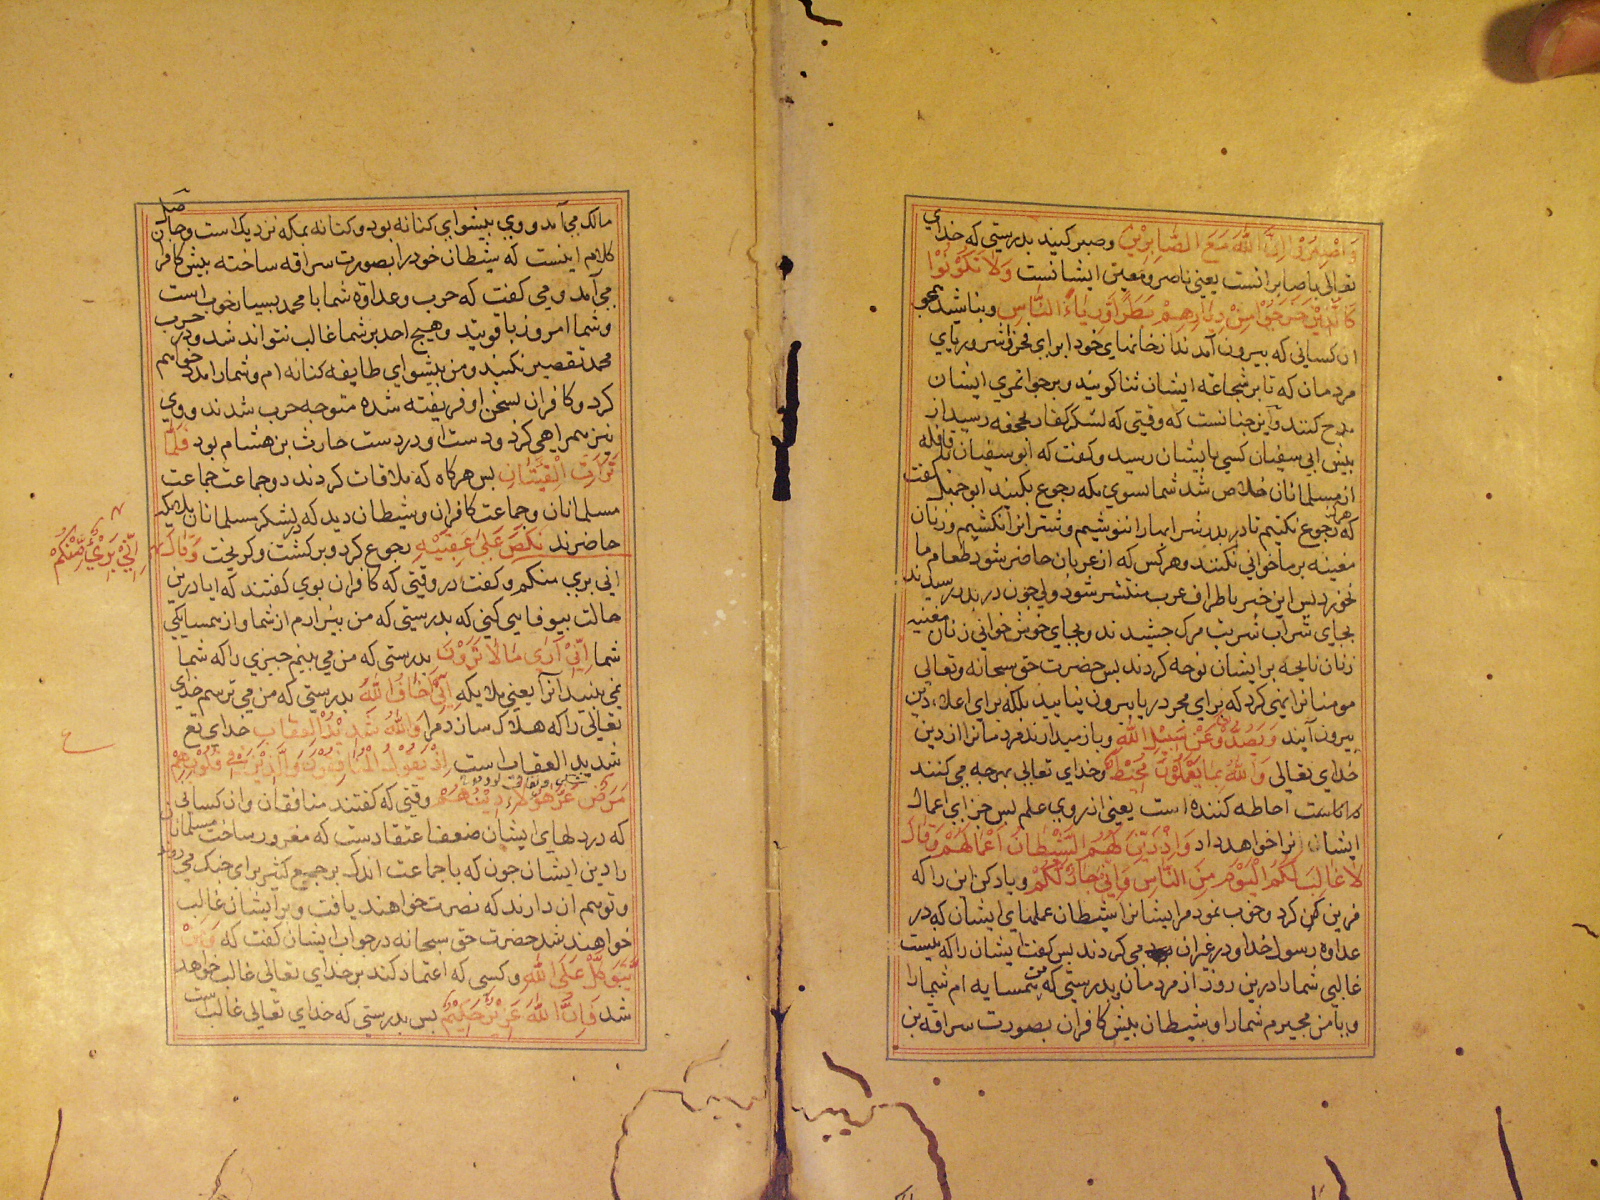 وَاصْبِرُوْا اِنَّ اللّٰهَ مَعَ الصَّابِرِيْنَ وصبر كنيد بدرستي كه خداي
تعالي با صابرانست يعني ناصر ومعين ايشانست وَلَا تَكُوْنُوْا
كَالَّذِيْنَ خَرَجُوْا مِنْ دِيَارِهِمْ بَطَرًا وَّرِيَاءَ النَّاسِ ومباشيد همچو
ان كساني كه بيرون آمدند از خانهاي خود از براي فخر وشر ورياي
مردمان كه تا بر شجاعة ايشان ثنا كويند وبر جوانمري ايشان
مدح كنند واين چنانست كه وقتي كه لشكر كفار بجحفه رسيد از
پيش ابي سفيان كسي بايشان رسيد وكفت كه ابو سفيان با قافله
از مسلمانان خلاص شد شما بسوي مكه رجوع بكنيد ابو جهل كفت
كه هركز رجوع نكنيم تا در بدر شرابها را ننوشيم وشترانرا نكشيم وزنان
مغنيه بر ما خواني نكنند وهر كس كه از عربان حاضر شود طعام ما
نخورد پس اين خبر باطراف عرب منتشر شود ولي چون در بدر رسيدند
بجاي شراب شربت مرك چشيدند وبجاي خوش خواني زنان مغنيه
زنان نايحه بر ايشان نوحه كردند پس حضرت حق سبحانه وتعالي
مومنانرا نهي كرد كه براي فخر وريا بيرون نيايند بلكه براي اعلاء دين
بيرون آيند وَيَصُدُّوْنَ عَنْ سَبِيْلِ اللّٰهِ وباز ميدارند مردمانرا از دين
خداي تعالي وَاللّٰهُ بِمَا يَعْمَلُوْنَ مُحِيْطٌ وخداي تعالي بهرچه مي كنند
احاطه كننده است يعني از روي علم پس جزاي اعمال
ايشانرا خواهد داد وَاِذْ زَيَّنَ لَهُمُ الشَّيْطَانُ اَعْمَالَهُمْ وَقَالَ
لَا غَالِبَ لَكُمُ الْيَوْمَ مِنَ النَّاسِ وَاِنِّيْ جَارٌ لَّكُمْ وياد كن اين را كه
مزين كرد وخوب نمود مر ايشانرا شيطان عملهاي ايشان كه در
عداوه رسول خدا ودر غيران مي كردند پس كفت ايشان را كه نيست
غالبي شما را درين روز از مردمان بدرستي كه من همسايه ام شما را
وپناه من مجيرم شما را وشيطان پيش كافران بصورت سراقه بن
مالك مي آمد ووي پيشواي كنانه بود وكنانه بمكه نزديك است وحاصل
كلام اينست كه شيطان خود را بصورت سراقه ساخته پيش كافر
مي آمد ومي كفت كه حرب وعداوة شما با محمد بسيار خوب است
وشما امروز با قوتيد وهيچ احد بر شما غالب نتواند شد ودر حرب
محمد تقصير نكنيد ومن پيشواي طايفه كنانه ام وشما را مدد خواهم
كرد وكافران بسخن او فريفته شده متوجه حرب شدند ووي
نيز همراهي كرد ودست او در دست حارث بن هشام بود فَلَمَّا
تَرَاءَتِ الْفِئَتَانِ پس هركاه كه ملاقات كردند دو جماعت جماعت
مسلمانان وجماعت كافران وشيطان ديد كه در لشكر مسلمانان ملايكه
حاضرند نَكَصَ عَلٰى عَقِبَيْهِ رجوع كرد وبر كشت وكريخت وَقَالَ
اِنِّيْ بَرِيْءٌ مِّنْكُمْ
اني بري منكم وكفت در وقتي كه كافران بوي كفتند كه ايا درين
حالت بيوفايي كني كه بدرستي كه من بيزارم از شما واز همسايكي
شما اِنِّيْ اَرٰى مَا لَا تَرَوْنَ بدرستي كه من مي بينم چيزي را كه شما
نمي بينيد آنرا يعني ملايكه اِنِّيْ اَخَافُ اللّٰهَ بدرستي كه من مي ترسم خداي
تعالي را كه هلاك سازد مرا وَاللّٰهُ شَدِيْدُ الْعِقَابِ خداي تع
شديد العقاب است اِذْ يَقُوْلُ الْمُنَافِقُوْنَ وَالَّذِيْنَ فِيْ قُلُوْبِهِمْ
مَرَضٌ غَرَّ هٰؤُلَاءِ دِيْنُهُمْ وقتي كه كفتند منافقان وان كساني
كه در دلهاي ايشان ضعف اعتقادست كه مغرور ساخت مسلمانان
را دين ايشان چون كه با جماعت اندك بر جميع كثير براي جنك مي روند
وتوهم ان دارند كه نصرت خواهند يافت وبر ايشان غالب
خواهند شد حضرت حق سبحانه در جواب ايشان كفت كه وَمَنْ
يَّتَوَكَّلْ عَلَى اللّٰهِ وكسي كه اعتماد كند بر خداي تعالي غالب خواهد
شد فَاِنَّ اللّٰهَ عَزِيْزٌ حَكِيْمٌ پس بدرستي كه خداي تعالي غالب ست